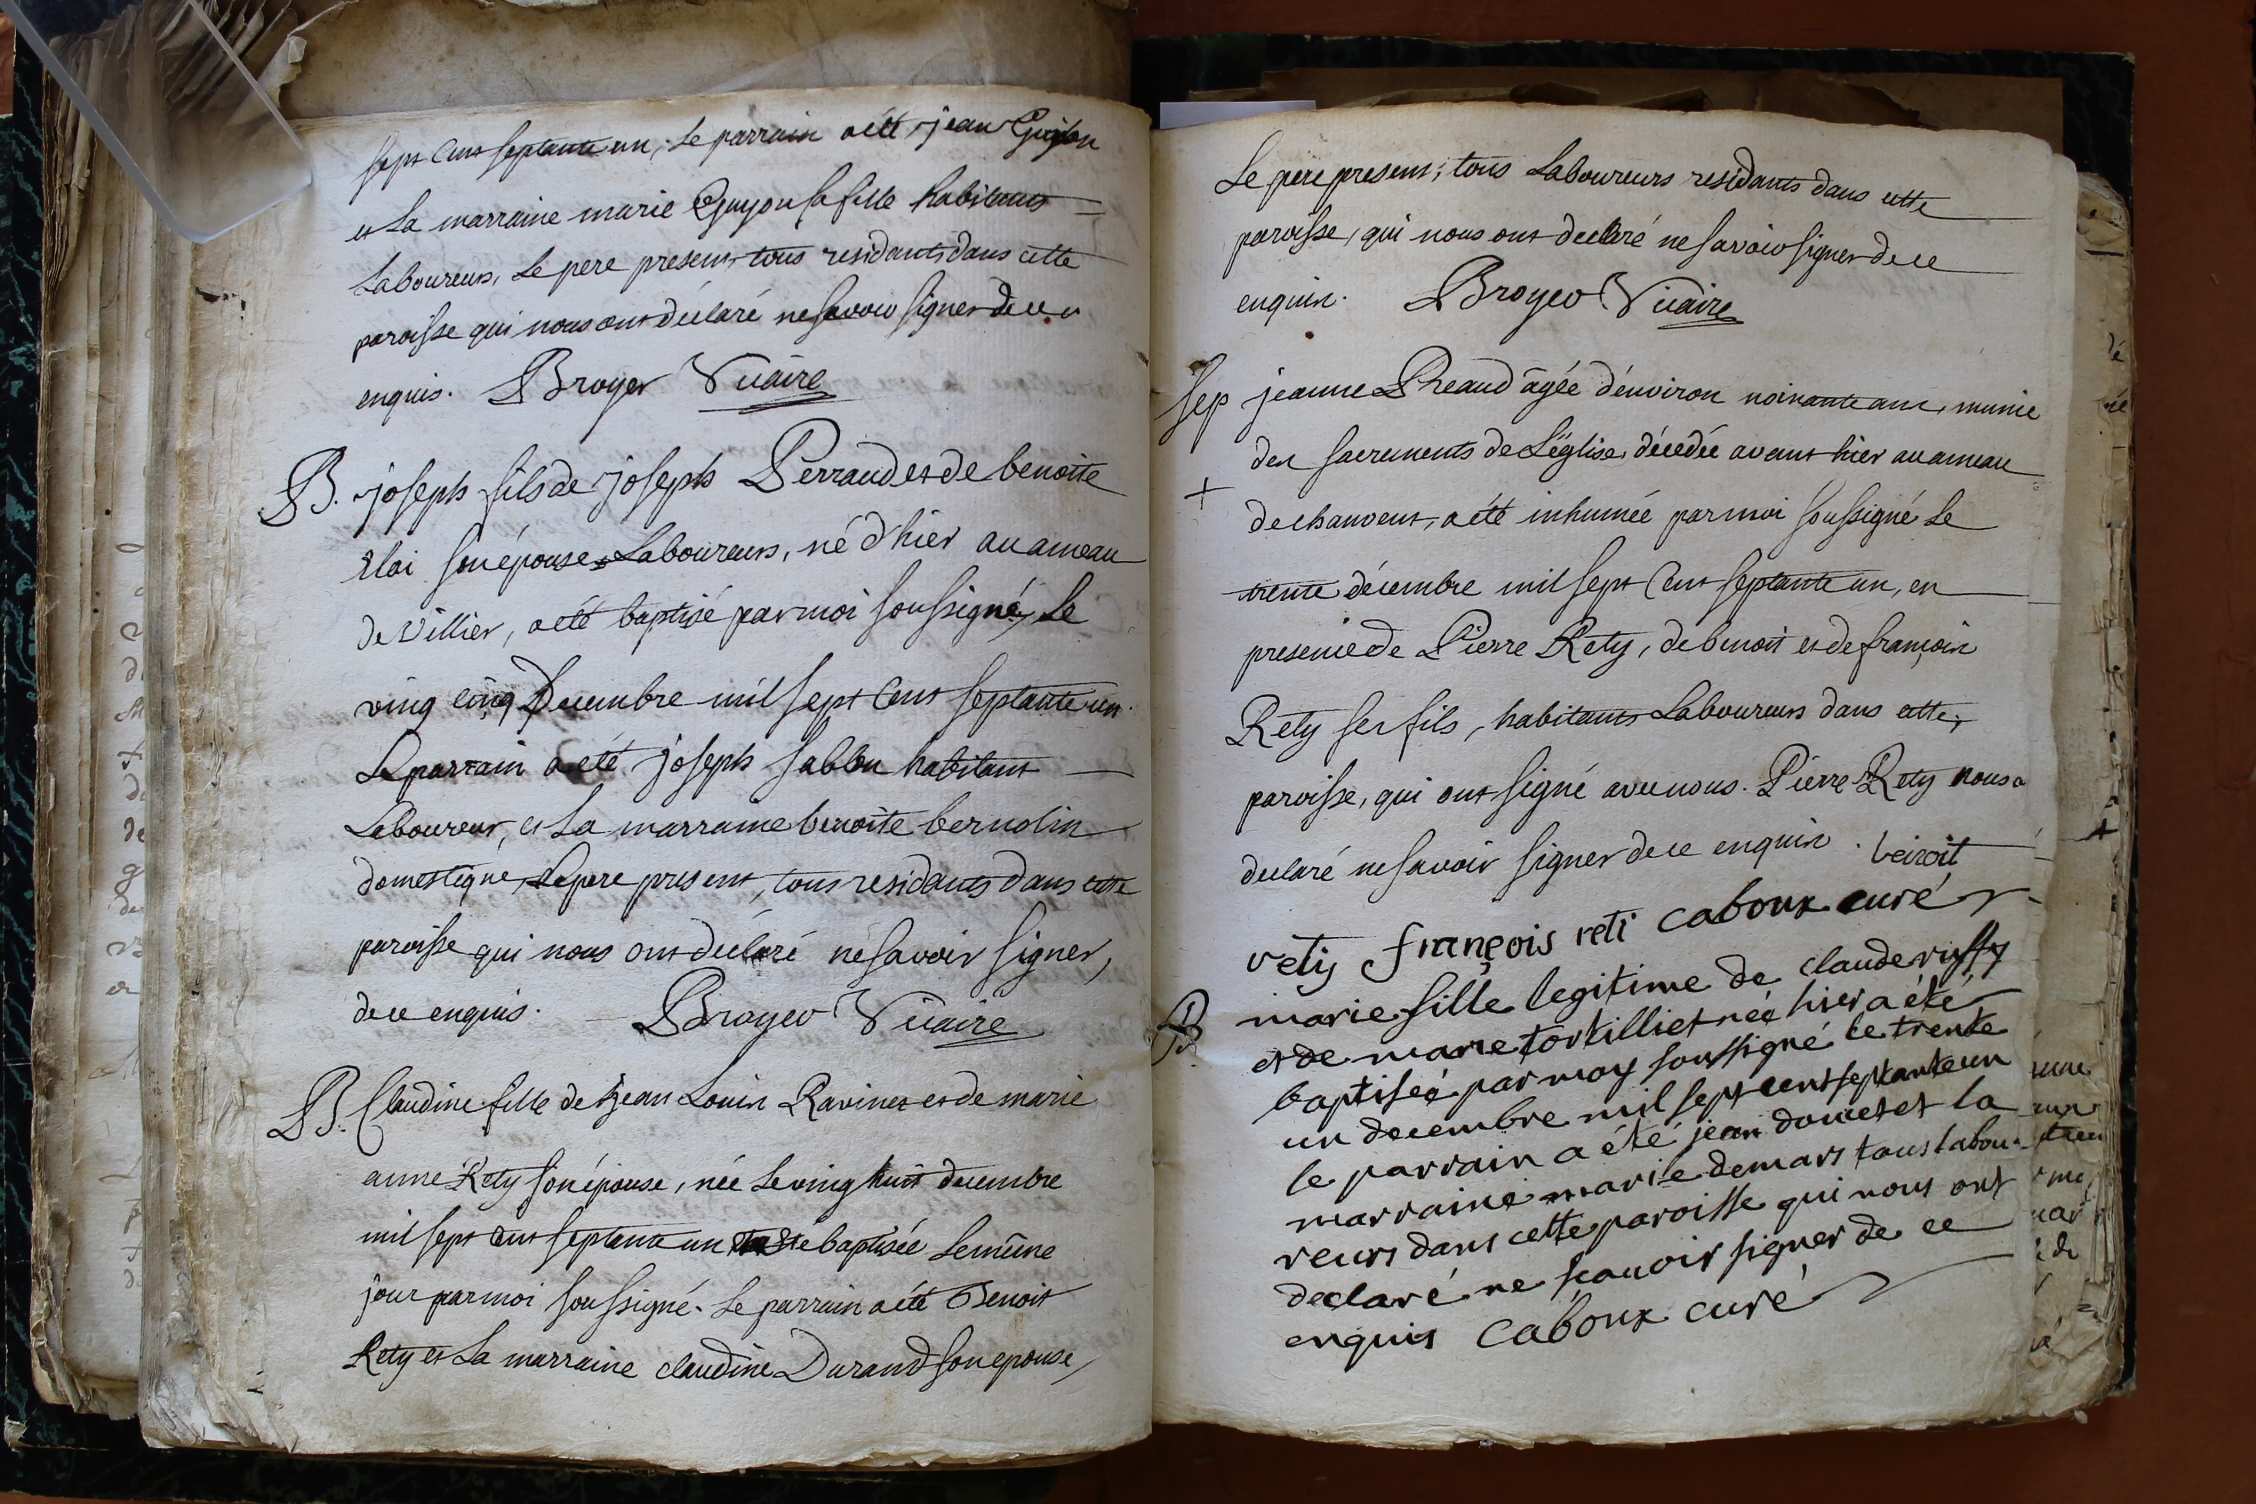 sept cent septante un, Le parrain a été jean Guyon
et La marraine marie Guyon sa fille habitants
Laboureurs, Le pere present tous residants dans cette
paroisse qui nous ont déclaré ne savoir signer de ce
enquis. Broyer Vicaire
B. joseph fils de joseph Perraud et de benoite
Eloi son épouse Laboureurs, né d'hier au ameau
de Villier, a été baptisé par moi soussigné, Le
ving cinq Decembre mil sept cent septante un.
Le parrain a été joseph habitant
Laboureur, et La marraine benoite bernolin
domestique, Le pere present, tous residants dans cette
paroisse qui nous ont déclaré ne savoir signer,
de ce enquis. Broyer Vicaire
B. Claudine fille de jean Louis Ravinet et de marie
anne Rety son épouse, née Le ving huit decembre
mil sept cent septante un baptisée Le même
jour par moi soussigné. Le parrain a été Benoit
Rety et La marraine claudine Durand son epouse,
Le pere present; tous Laboureurs residants dans cette
paroisse, qui nous ont declaré ne savoir signer de ce
enquis. Broyer Vicaire
sep jeanne Pheaud âgée d'environ noinante ans, munie
des sacrements de L'église, décedée avant hier au ameau
+ de chanvent, a été inhumée par moi soussigné Le
trente décembre mil sept cent septante un, en
presence de Pierre Rety, de benoit et de françois
Rety ses fils, habitants Laboureurs dans cette
paroisse, qui ont signé avec nous. Pierre Rety nous a
declaré ne savoir signer de ce enquis. benoit
rety françois reti caboux curé
B. marie fille legitime de claude ruffy
et de marie tortilliet née hier a été
baptiseé par moy soussigné le trente
un decembre mil sept cent septante un
le parrain a été jean doucet et la
marraine marie demars tous labou-
reurs dans cette paroisse qui nous ont
declaré ne scauoir signer de ce
enquis caboux curé